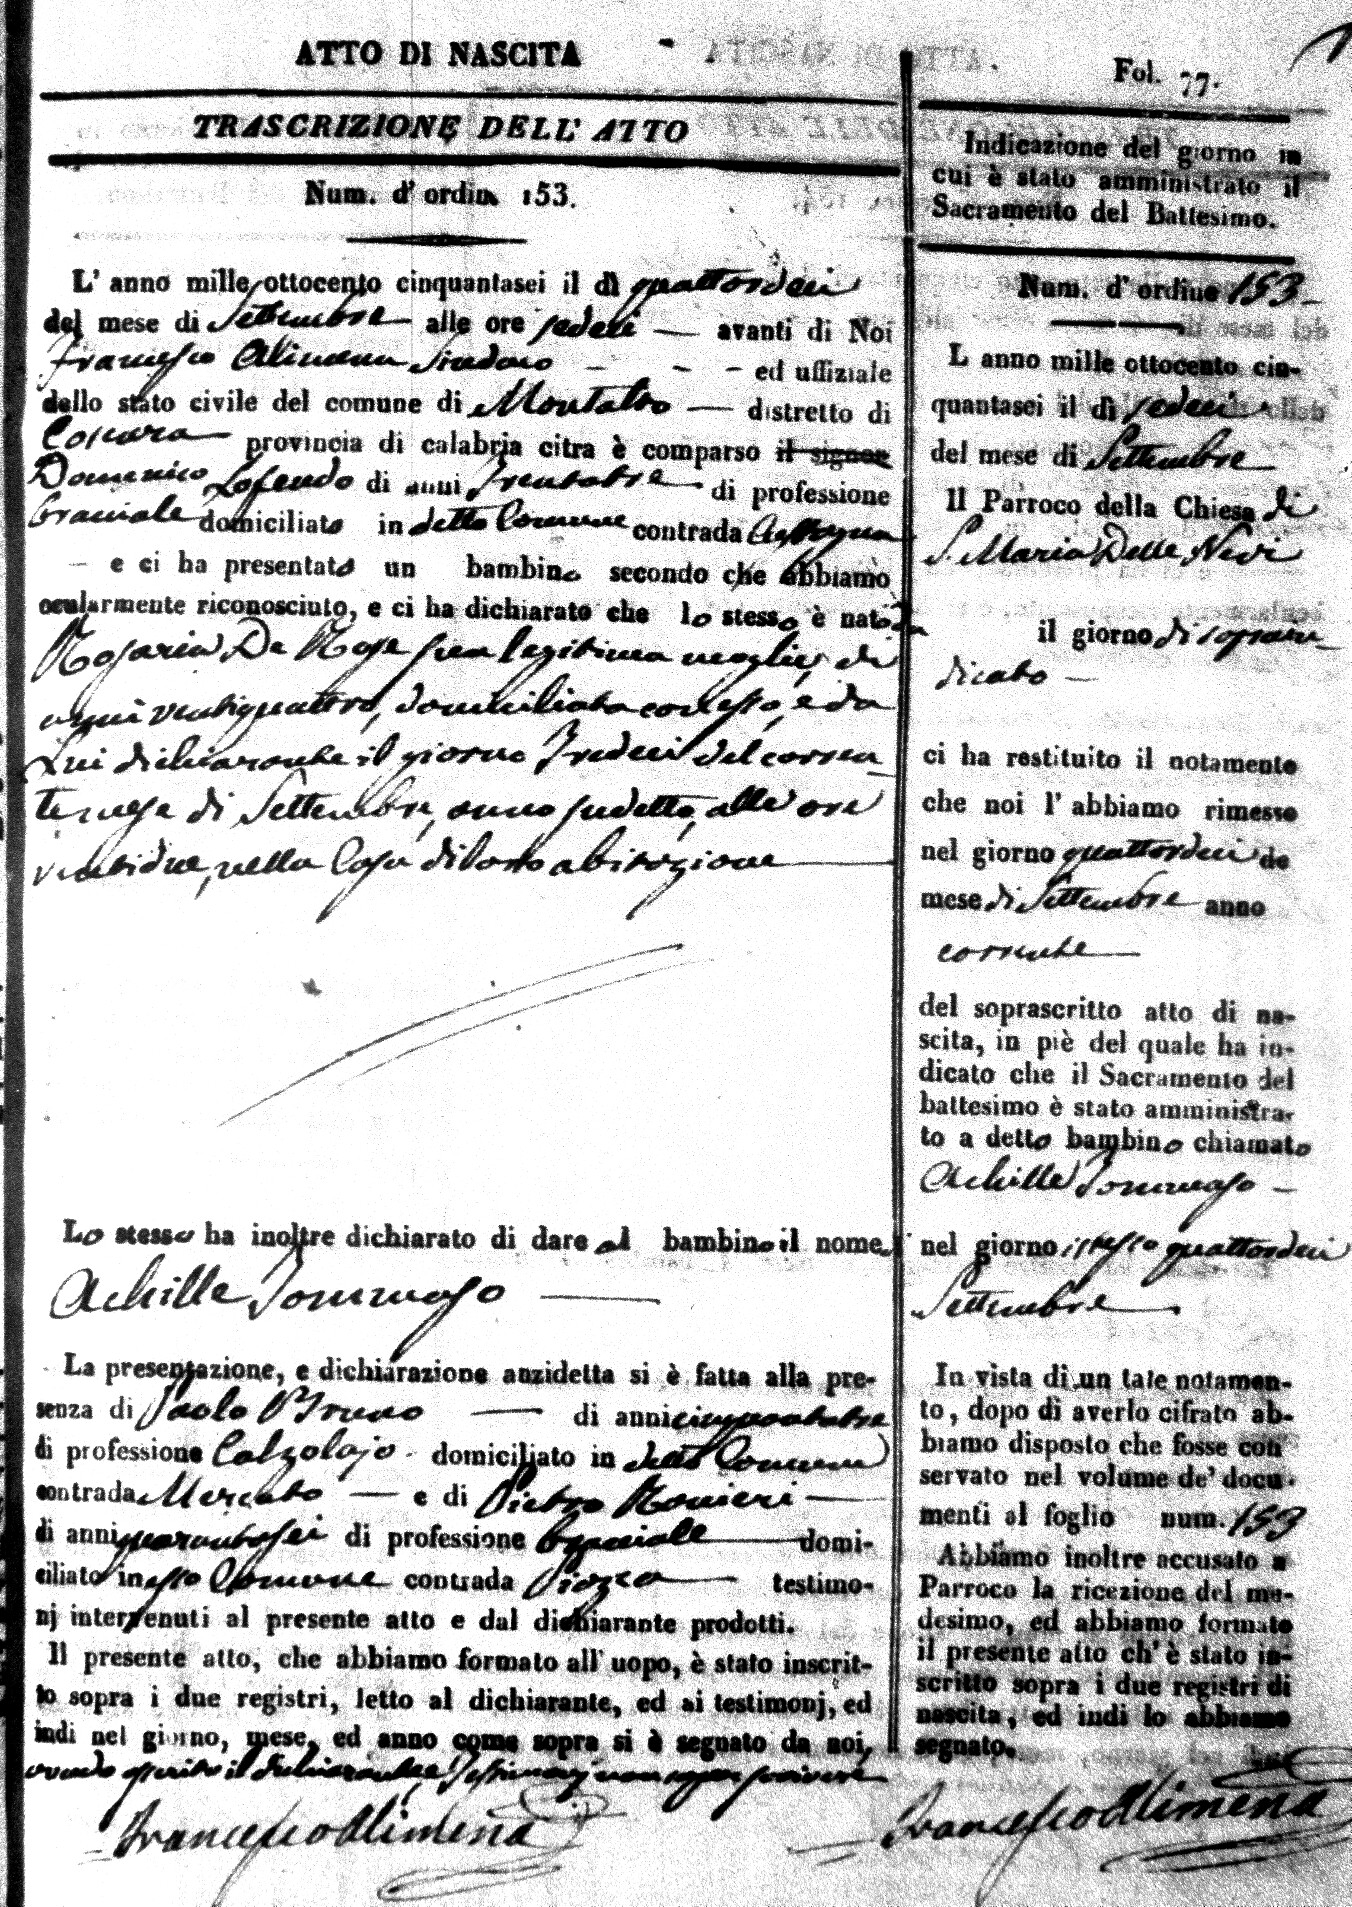 ATTO DI NASCITA
TRASCRIZIONE DELL' ATTO
Num. d' ordin. 153.
L' anno mille ottocento cinquantasei il dì quattordeci
del mese di Settembre alle ore sedeci — avanti di Noi
Francesco Alimena Sindaco - - - ed uffiziale
dello stato civile del comune di Montalto — distretto di
Cosenza provincia di calabria citra è comparso il signor
Domenico Lofeudo di anni Trentatre di professione
braciale domiciliato in detto Comune contrada
— e ci ha presentato un bambino secondo che abbiamo
ocularmente riconosciuto, e ci ha dichiarato che lo stesso è nato da
Rosaria De Rose sua legitima moglie, di
anni ventiquattro, domiciliata con esso, e da
Lui dichiarante il giorno Tredeci del corren
te mese di Settembre, anno sudetto, alle ore
ventidue, nella Casa di loro abitazione
Lo stesso ha inoltre dichiarato di dare al bambino il nome
Achille Tommaso —
La presentazione, e dichiarazione anzidetta si è fatta alla pre-
senza di Paolo Bruno — di anni cinquantatre
di professione Calzolajo domiciliato in detto Comune
contrada Mercato — e di Pietro Ranieri —
di anni quarantasei di professione braciale domi-
ciliato in esso Comune contrada Piazza — testimo-
nj intervenuti al presente atto e dal dichiarante prodotti.
Il presente atto, che abbiamo formato all' uopo, è stato inscrit-
to sopra i due registri, letto al dichiarante, ed ai testimonj, ed
indi nel giorno, mese, ed anno come sopra si è segnato da noi,
avendo asserito il dichiarante, e Testimonj non saper scrivere
Francesco Alimena
Fol. 77.
Indicazione del giorno in
cui è stato amministrato il
Sacramento del Battesimo.
Num. d' ordine 153
L anno mille ottocento cin-
quantasei il dì sedeci
del mese di Settembre
Il Parroco della Chiesa di
S. Maria Delle Nevi
il giorno di sopra in
dicato —
ci ha restituito il notamento
che noi l' abbiamo rimesso
nel giorno quattordeci de
mese di Settembre anno
corrente
del soprascritto atto di na-
scita, in piè del quale ha in-
dicato che il Sacramento del
battesimo è stato amministra-
to a detto bambino chiamato
Achille Tommaso —
nel giorno istesso quattordeci
Settembre
In vista di un tale notamen-
to, dopo di averlo cifrato ab-
biamo disposto che fosse con
servato nel volume de' docu-
menti al foglio num. 153
Abbiamo inoltre accusato a
Parroco la ricezione del me-
desimo, ed abbiamo formato
il presente atto ch' è stato in-
scritto sopra i due registri di
nascita, ed indi lo abbiamo
segnato.
Francesco Alimena